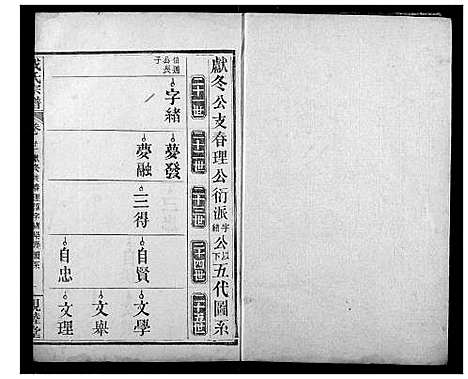 獻冬公支春理公衍派字緒公以下五代圖系
二十一世
二十二世
二十三世
二十四世
二十五世
信通公長子
字緒
夢發
夢融
三得
自賢
自忠
文學
文舉
文理
氏宗譜